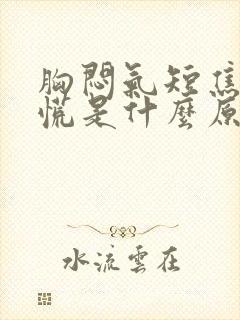 胸悶氣短焦
慌是什麼原
水流雲在